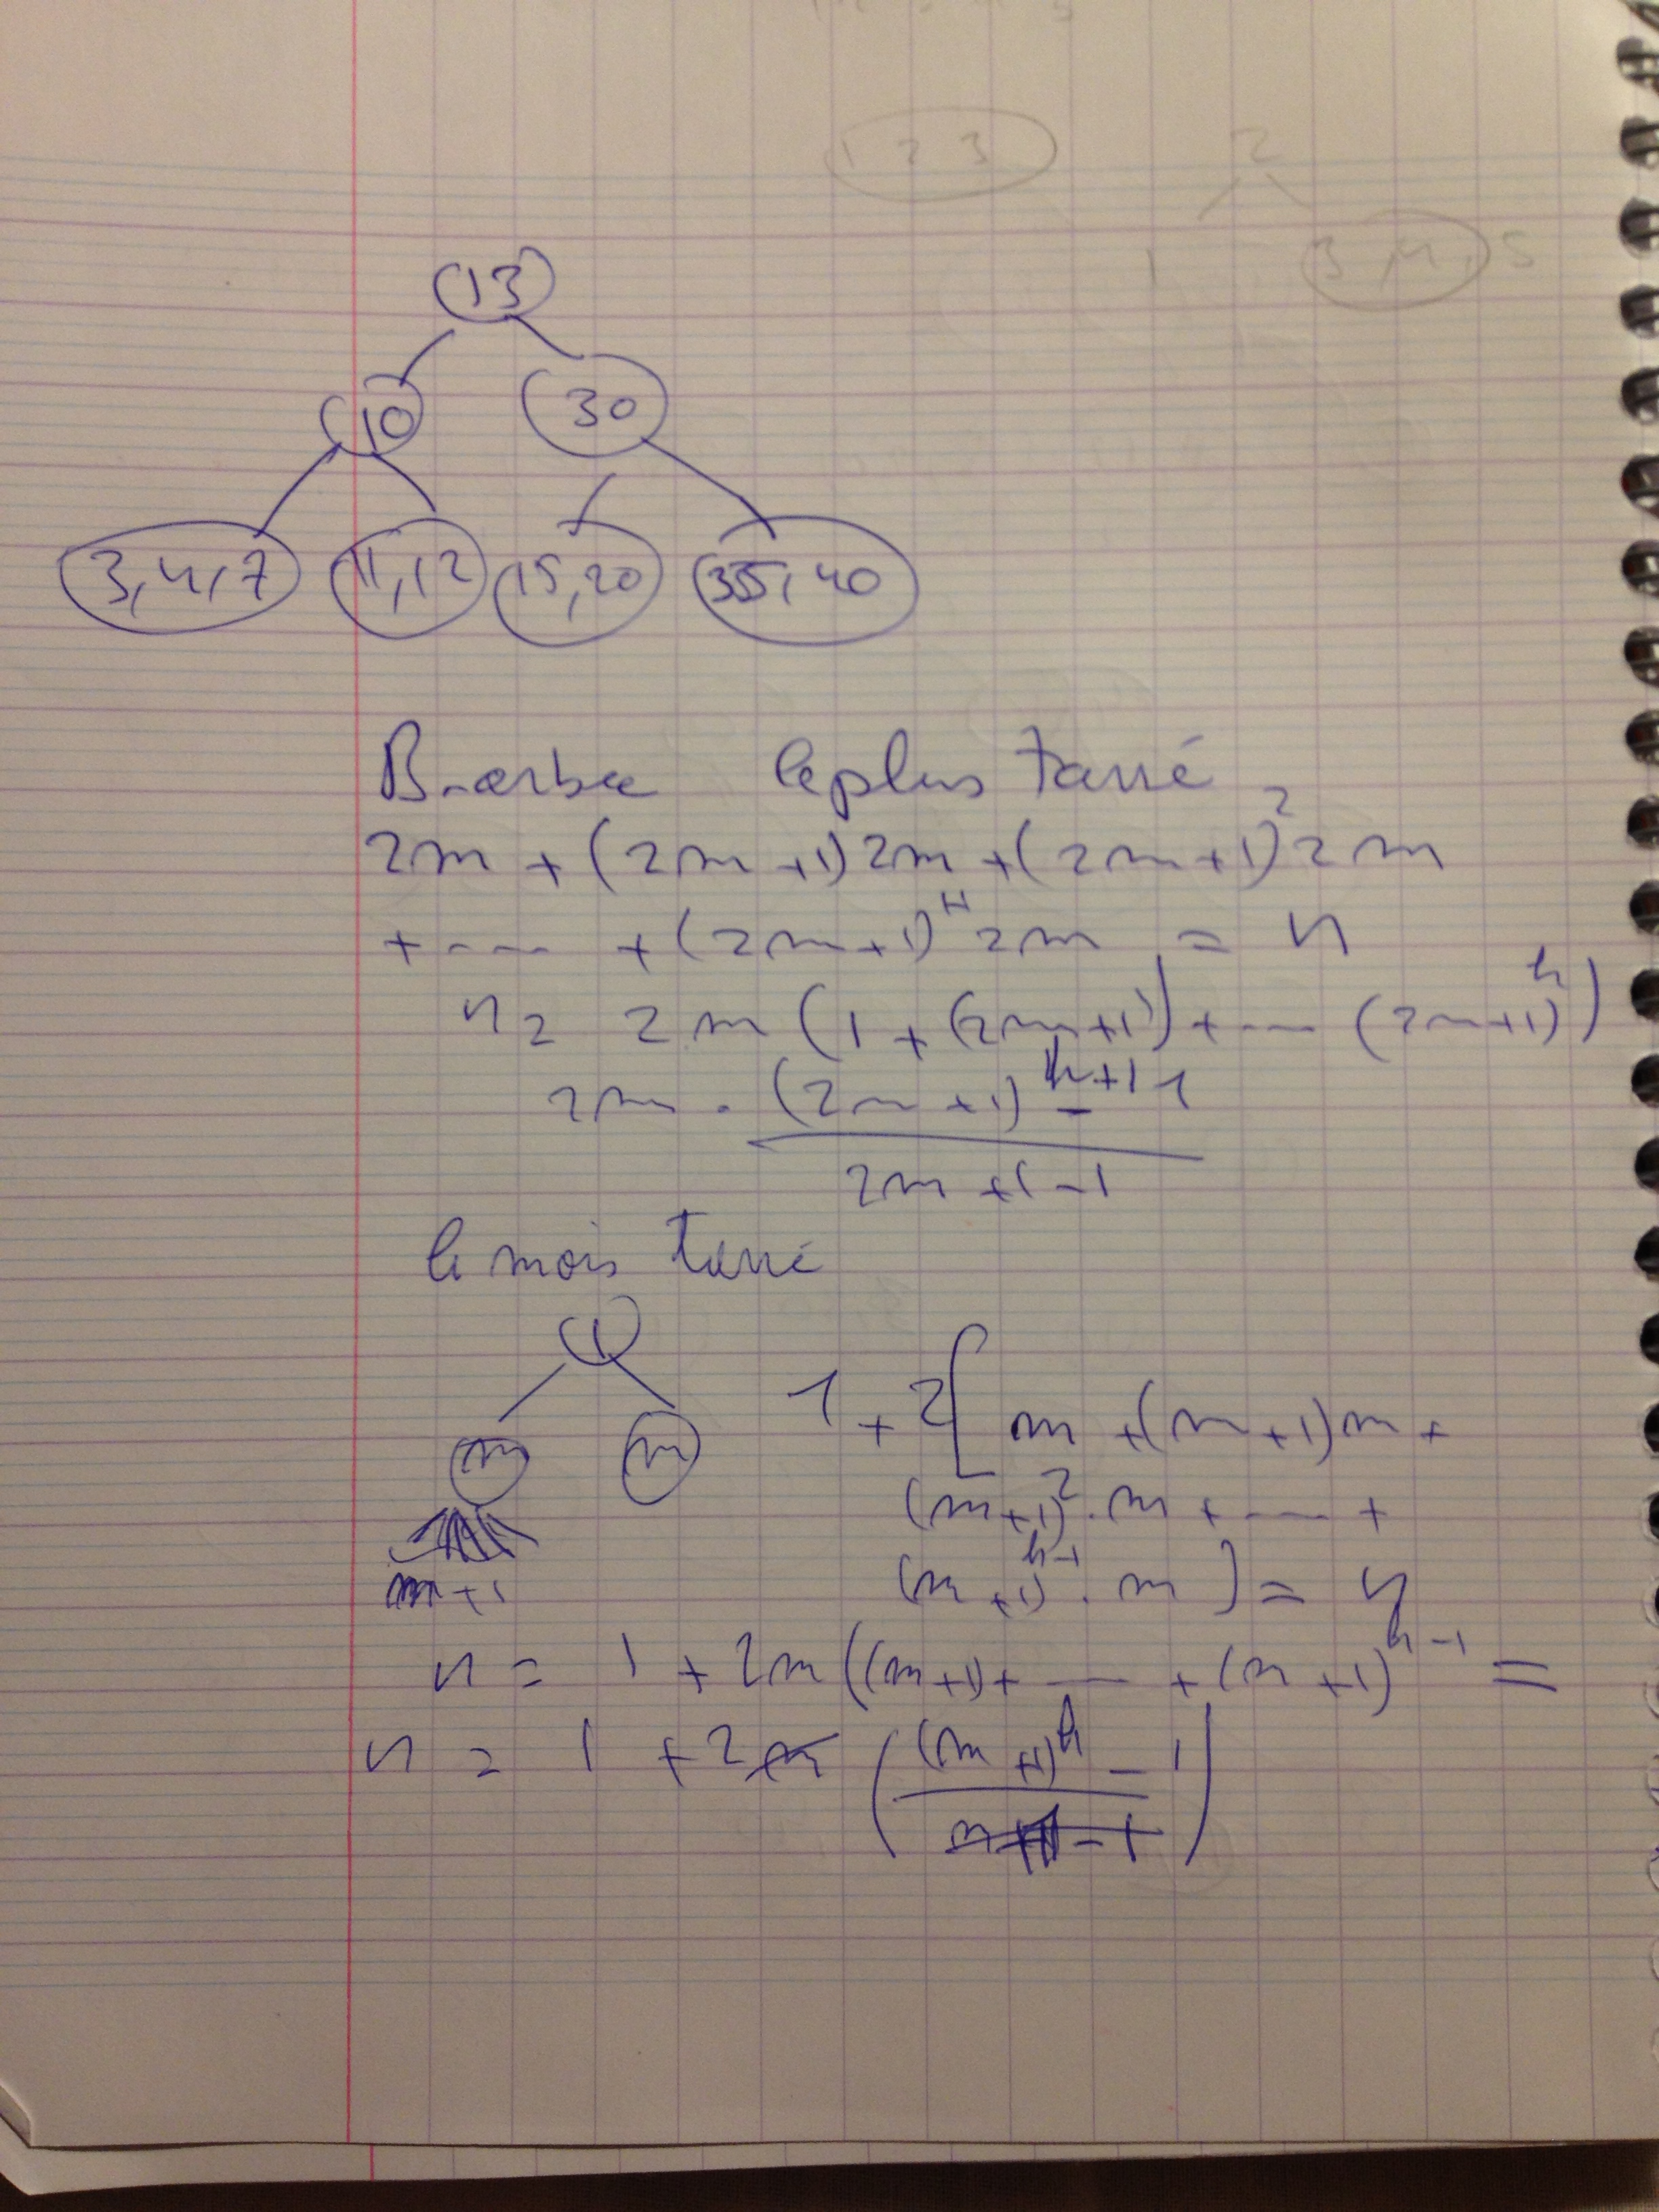 13
10 30
3,4,7 11,12 15,20 35,40
B-arbre le plus tassé
2m + (2m+1)2m + (2m+1)² 2m
+ ---- + (2m+1)^H 2m = n
n = 2m (1 + (2m+1) + --- (2m+1)^h)
2m . ((2m+1)^(h+1) - 1) / (2m+1-1)
le mois tassé
1
m m
m+1
1 + 2[ m + (m+1)m +
(m+1)² . m + ---- +
(m+1)^(h-1) . m ] = n
n = 1 + 2m((m+1)+ ---- + (m+1)^(h-1) =
n = 1 + 2m (((m+1)^h - 1) / (m+1-1))